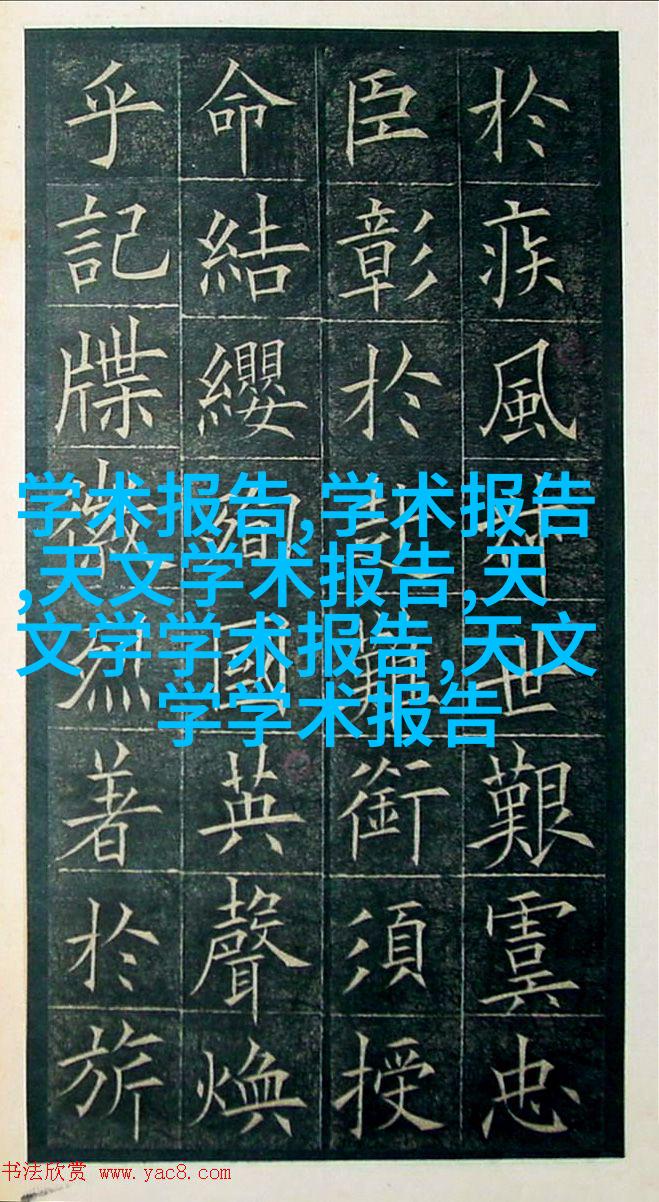 於疾風世艱虞忠
臣彰於赴難銜須授
命結纓殉國英聲煥
乎記牒徽烈著於旂
学术报告,学术报告
,天文学术报告,天
文学学术报告,天文
学学术报告
书法欣赏 www.yac8.com